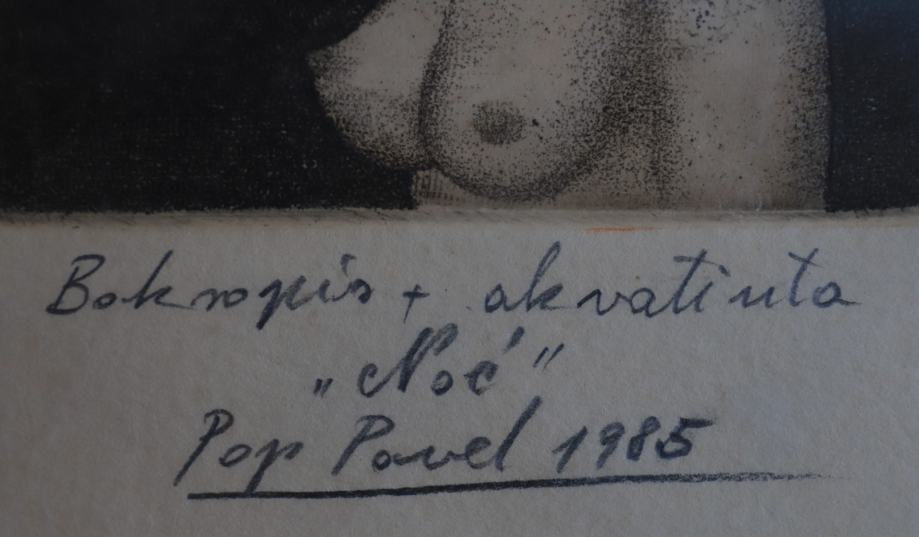 Bakropis + akvatinta
„Noć"
Pop Pavel 1985